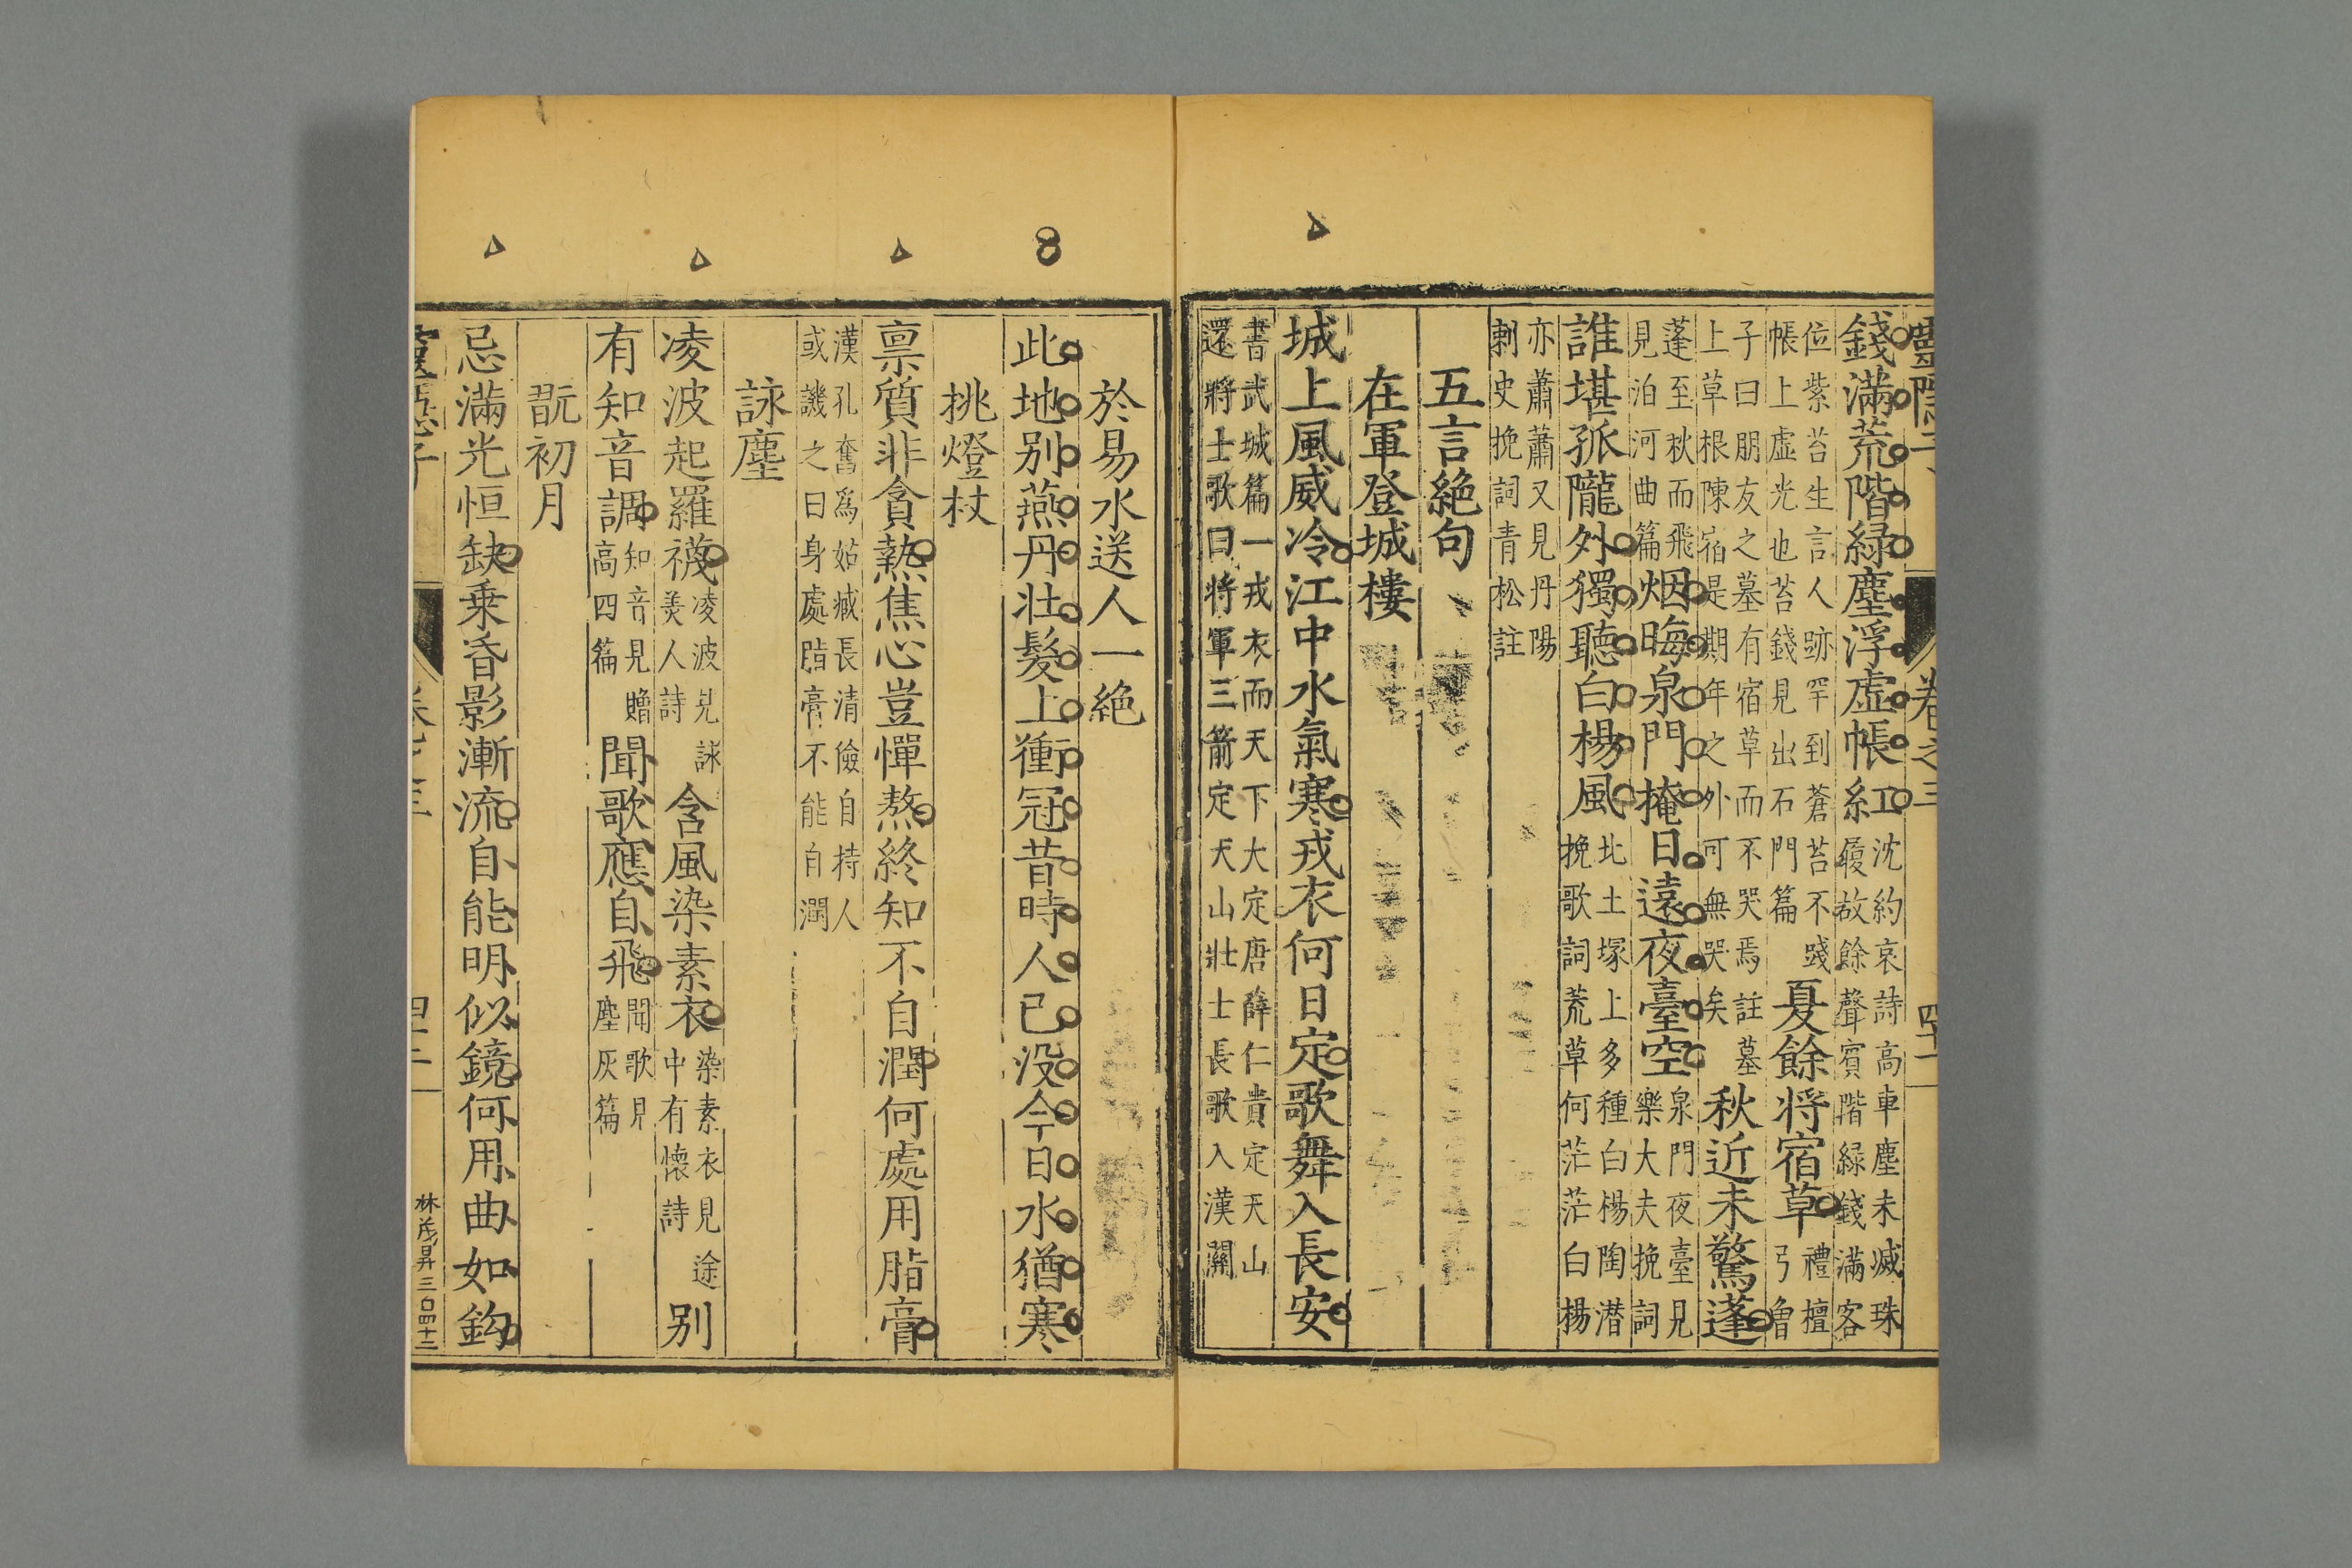 錢滿荒階緑塵浮虛帳紅沈約哀詩高車塵未滅珠履故餘聲賓階緑錢滿客
位紫苔生言人跡罕到蒼苔不踐帳上虛光也苔錢見出石門篇夏餘將宿草禮檀弓曾
子曰朋友之墓有宿草而不哭焉註墓上草根陳宿是期年之外可無哭矣秋近未驚蓬
蓬至秋而飛見泊河曲篇烟晦泉門掩日遠夜臺空泉門夜臺見樂大夫挽詞
誰堪孤隴外獨聽白楊風北土塚上多種白楊陶潜挽歌詞荒草何茫茫白楊
亦蕭蕭又見丹陽刺史挽詞青松註
五言絶句
在軍登城樓
城上風威冷江中水氣寒戎衣何日定歌舞入長安
書武城篇一戎衣而天下大定唐薛仁貴定天山還將士歌曰將軍三箭定天山壯士長歌入漢關
於易水送人一絶
此地别燕丹壯髮上衝冠昔時人已没今日水猶寒
挑燈杖
禀質非貪熱焦心豈憚熬終知不自潤何處用脂膏
漢孔奮爲姑臧長清儉自持人或譏之曰身處脂膏不能自潤
詠塵
凌波起羅襪凌波見詠美人詩含風染素衣染素衣見途中有懷詩别
有知音調知音見贈高四篇聞歌應自飛聞歌見塵灰篇
翫初月
忌滿光恒缺乗昏影漸流自能明似鏡何用曲如鈎
卷之三
四十二
林茂昇三